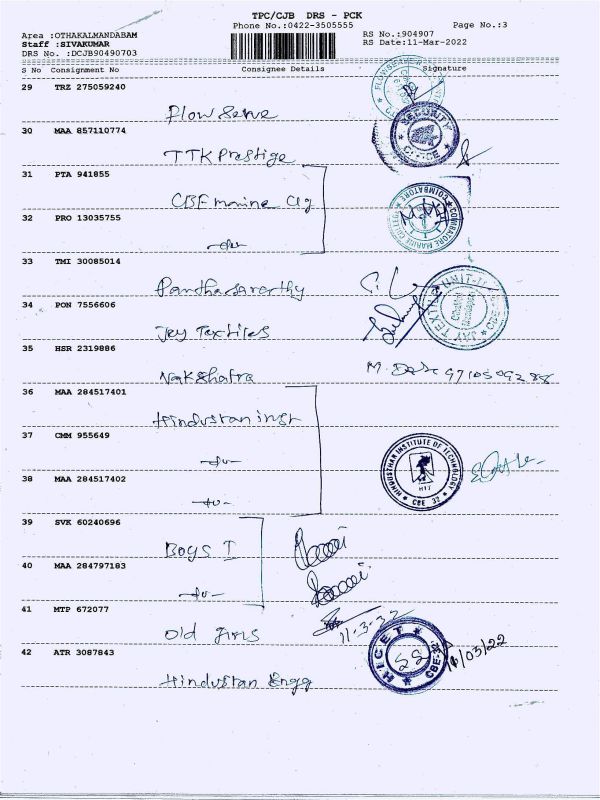 TPC/CJB DRS - PCK
Phone No.:0422-3505555
Page No.:3
Area :OTHAKALMANDABAM
Staff :SIVAKUMAR
DRS No. :DCJB90490703
RS No.:904907
RS Date:11-Mar-2022
S No Consignment No Consignee Details Signature
29 TRZ 275059240
Flow Serve
30 MAA 857110774
SECURITY
OFFICE
TTK Prestige
31 PTA 941855
CBE marine clg
32 PRO 13035755
COIMBATORE MARINE COLLEGE
COIMBATORE
-do-
33 TMI 30085014
Parthasarathy
34 PON 7556606
JAY TEXTILES UNIT-II
CBE
Jay Textiles
35 HSR 2319886
Nakshatra
36 MAA 284517401
Hindustan inst
37 CMM 955649
-do-
HINDUSTHAN INSTITUTE OF TECHNOLOGY
HIT
CBE 32
38 MAA 284517402
-do-
39 SVK 60240696
Boys I
40 MAA 284797183
-do-
41 MTP 672077
Old Girls
42 ATR 3087843
HICET
CBE-32
11/03/22
Hindustan Engg